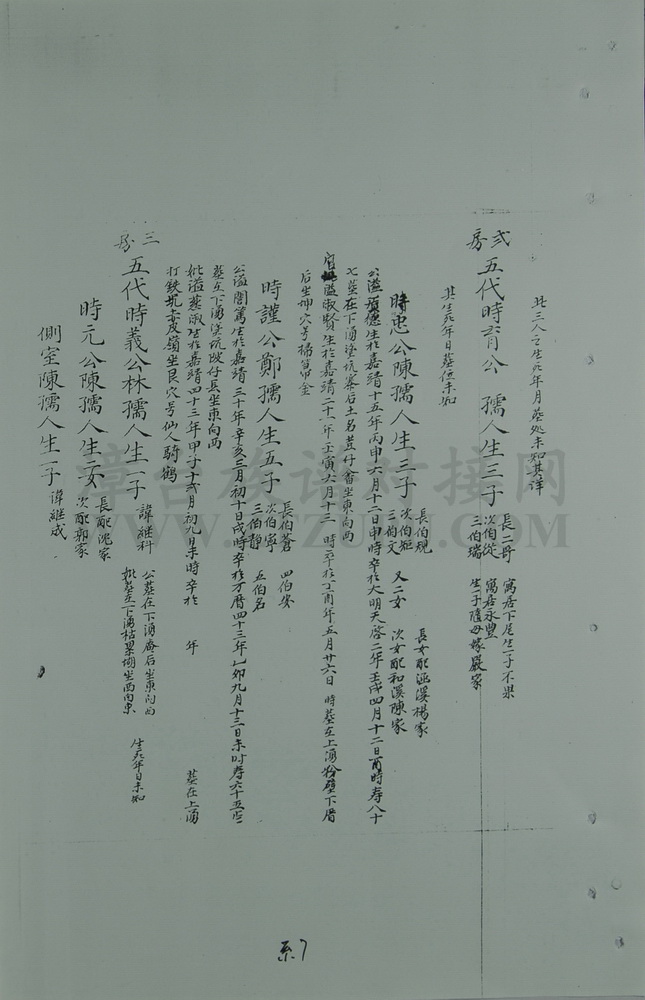 此三人之生死年月墓处未知其详
弍房
五代時育公 孺人生三子
長二哥 寓居下尾生一子不果
次伯從 寓居永豐
三伯瑞 生一子隨母嫁嚴家
其生死年日墓位未知
時忠公陳孺人生三子
長伯規
次伯矩
三伯文
又二女
長女配涵溪楊家
次女配和溪陳家
公謚 德生於嘉靖十五年丙申六月十二日申時卒於大明天啓二年壬戌四月十二日酉時寿八十
七墓在下涌 坑寨后土名荳仔畲坐東向西
謚淑賢生於嘉靖二十一年壬寅六月十三 時卒於丁酉年五月廿六日 時墓在上涌粉壁下厝
后坐坤穴号掃 金
時謹公鄭孺人生五子
長伯蒼
次伯寧
三伯静
四伯安
五伯名
公謚 篤生於嘉靖三十年辛亥三月初十日戌時卒於万曆四十三年乙卯九月十三日未时寿六十五岁
墓在下涌 坑 仔 坐東向西
妣謚慈淑生於嘉靖四十三年甲子十弍月初九日未時卒於 年 墓在上涌
打鉄坑 皮嶺坐艮穴号仙人騎鶴
三房
五代時義公林孺人生一子 諱継科
公墓在下涌庵后坐東向西
妣墓在下涌枯果 坐西向東
生死年日未知
時元公陳孺人生二女
長配沈家
次配郭家
側室陳孺人生一子 諱継成
漳台族谱对接网
WWW.ZTZUPU.COM
系7